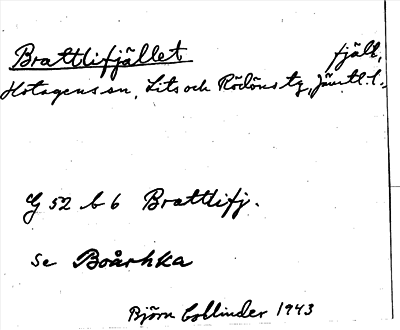 Brattlifjället fjäll,
Hotagens sn, Lits och Rödöns tg, Jämtl. l.
G 52 b 6 Brattlifj.
se Boårhka
Björn Collinder 1943